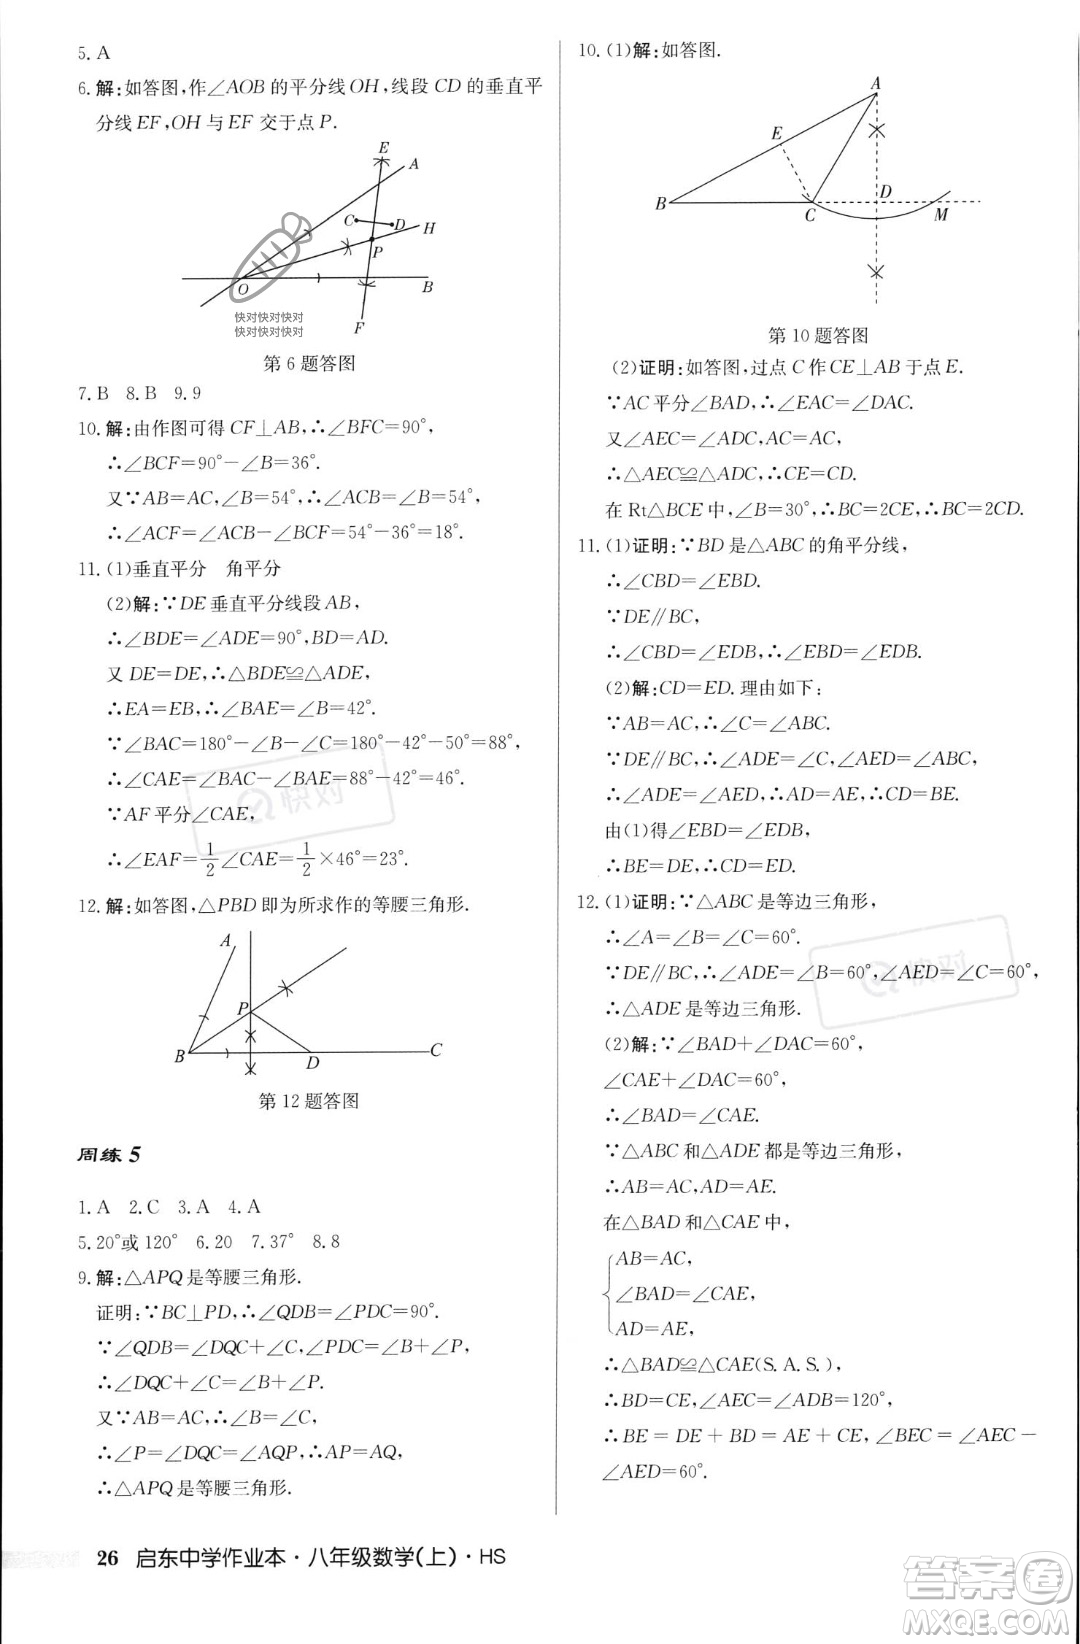 5. A
6. 解:如答图,作∠AOB 的平分线OH,线段 CD 的垂直平
分线 EF,OH 与 EF 交于点 P.
E
A
C
D
H
P
O
B
F
快对快对快对
快对快对快对
第 6 题答图
7. B 8. B 9. 9
10. 解:由作图可得 CF⊥AB,∴∠BFC=90°,
∴∠BCF=90°-∠B=36°.
又∵AB=AC,∠B=54°,∴∠ACB=∠B=54°,
∴∠ACF=∠ACB-∠BCF=54°-36°=18°.
11. (1)垂直平分 角平分
(2)解:∵DE 垂直平分线段 AB,
∴∠BDE=∠ADE=90°,BD=AD.
又 DE=DE,∴△BDE≌△ADE.
∴EA=EB,∴∠BAE=∠B=42°.
∵∠BAC=180°-∠B-∠C=180°-42°-50°=88°,
∴∠CAE=∠BAC-∠BAE=88°-42°=46°.
∵AF 平分∠CAE,
∴∠EAF=1/2∠CAE=1/2×46°=23°.
12. 解:如答图,△PBD 即为所求作的等腰三角形.
A
P
B
D
C
第 12 题答图
周练 5
1. A 2. C 3. A 4. A
5. 20°或 120° 6. 20 7. 37° 8. 8
9. 解:△APQ 是等腰三角形.
证明:∵BC⊥PD,∴∠QDB=∠PDC=90°.
∵∠QDB=∠DQC+∠C,∠PDC=∠B+∠P,
∴∠DQC+∠C=∠B+∠P.
又∵AB=AC,∴∠B=∠C,
∴∠P=∠DQC=∠AQP,∴AP=AQ,
∴△APQ 是等腰三角形.
10. (1)解:如答图.
A
E
B
C
D
M
第 10 题答图
(2)证明:如答图,过点 C 作 CE⊥AB 于点 E.
∵AC 平分∠BAD,∴∠EAC=∠DAC.
又∠AEC=∠ADC,AC=AC,
∴△AEC≌△ADC,∴CE=CD.
在 Rt△BCE 中,∠B=30°,∴BC=2CE,∴BC=2CD.
11. (1)证明:∵BD 是△ABC 的角平分线,
∴∠CBD=∠EBD.
∵DE∥BC,
∴∠CBD=∠EDB,∴∠EBD=∠EDB.
(2)解:CD=ED.理由如下:
∵AB=AC,∴∠C=∠ABC.
∵DE∥BC,∴∠ADE=∠C,∠AED=∠ABC,
∴∠ADE=∠AED,∴AD=AE,∴CD=BE.
由(1)得∠EBD=∠EDB,
∴BE=DE,∴CD=ED.
12. (1)证明:∵△ABC 是等边三角形,
∴∠A=∠B=∠C=60°.
∵DE∥BC,∴∠ADE=∠B=60°,∠AED=∠C=60°,
∴△ADE 是等边三角形.
(2)解:∵∠BAD+∠DAC=60°,
∠CAE+∠DAC=60°,
∴∠BAD=∠CAE.
∵△ABC 和△ADE 都是等边三角形,
∴AB=AC,AD=AE.
在△BAD 和△CAE 中,
AB=AC,
∠BAD=∠CAE,
AD=AE,
∴△BAD≌△CAE(S.A.S.),
∴BD=CE,∠AEC=∠ADB=120°,
∴BE=DE+BD=AE+CE,∠BEC=∠AEC-
∠AED=60°.
快对
快对
26 启东中学作业本·八年级数学(上)·HS
答案圈
MXQE.COM